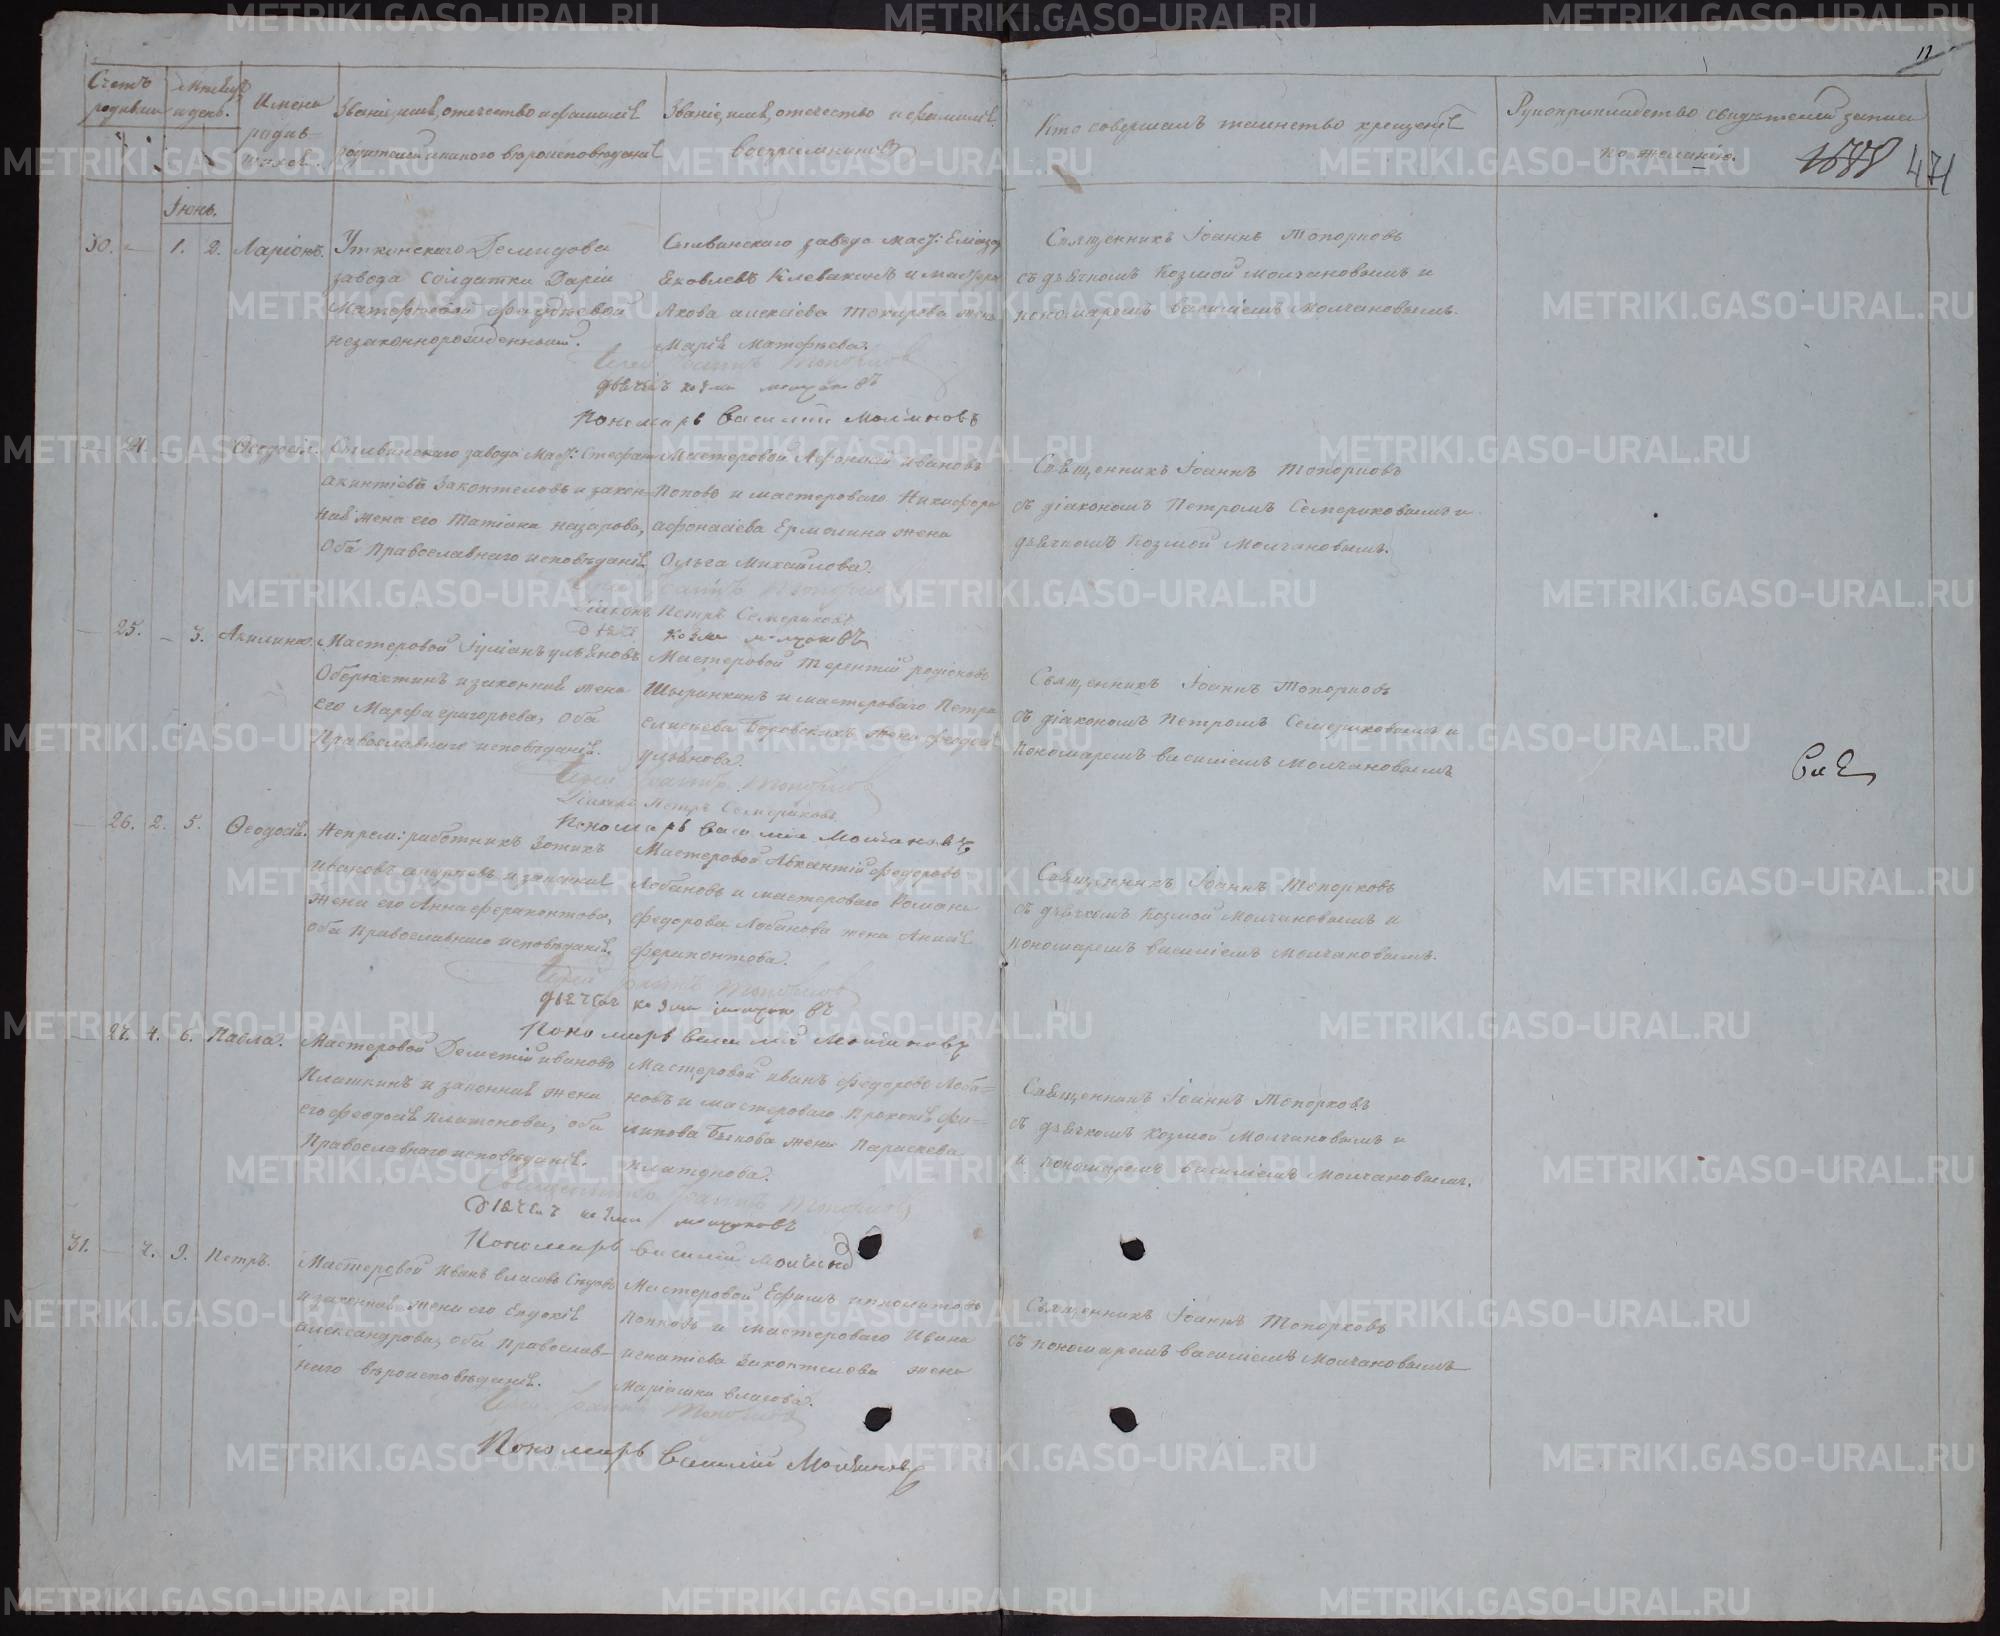 11
Счетъ
родивш:
Мѣсяцъ
и день.
Имена
родив-
шихся.
Званіе, имя, отчество и фамилія
родителей и какого вѣроисповѣданія
Званіе, имя, отчество и фамилія
воспріемниковъ
Кто совершалъ таинство крещенія
Рукоприкладство свидѣтелей записи
по желанію.
471
Іюнь.
30. – 1. 2. Ларіонъ.
Уткинскаго Демидова
завода солдатки Даріи
незаконнорожденный.
Сылвинскаго завода маст:
Яковлевъ Клевакинъ и мастера
Акова алексіева Токарева жена
Марія Матфеева.
Священникъ Іоаннъ Топорковъ
съ дьячкомъ Козмой Молчановымъ и
пономаремъ Василіемъ Молчановымъ.
Іерей Іоаннъ Топорковъ
дьячекъ козма молчановъ
Пономарь Василій Молчановъ
24. Ѳеодосія.
Сылвинскаго завода Маст: Стефанъ
акинтіевъ Закоптеловъ и закон-
ная жена его Татіана назарова,
Оба Православнаго исповѣданія.
Мастеровой Афонасій ивановъ
Поповъ и мастероваго Никифора
афонасіева Ермолина жена
Ольга Михайлова.
Священникъ Іоаннъ Топорковъ
съ діакономъ Петромъ Семериковымъ и
дьячкомъ Козмой Молчановымъ.
Іерей Іоаннъ Топорковъ
Діаконъ Петръ Семериковъ
дьячекъ козма молчановъ
25. – 3. Акилина.
Мастеровой Іуліанъ ульяновъ
Оберюхтинъ и законная жена
его Марфа григорьева, оба
Православнаго исповѣданія.
Мастеровой Терентій родіоновъ
Шыринкинъ и мастероваго Петра
елисеева Боровскихъ жена феодосія
ульянова.
Священникъ Іоаннъ Топорковъ
съ діакономъ Петромъ Семериковымъ и
Пономаремъ василіемъ Молчановымъ
Іерей Іоаннъ Топорковъ
Діаконъ Петръ Семериковъ
Пономарь Василій Молчановъ
26. 2. 5. Ѳеодосія.
Непрем: работникъ Зотикъ
ивановъ и законная
жена его Анна ферапонтова,
оба Православнаго исповѣданія.
Мастеровой Авксентій федоровъ
Лобановъ и мастероваго Романа
федорова Лобанова жена Анисія
ферапонтова.
Священникъ Іоаннъ Топорковъ
съ дьячкомъ Козмой Молчановымъ и
пономаремъ василіемъ Молчановымъ.
Іерей Іоаннъ Топорковъ
дьячекъ козма молчановъ
Пономарь Василій Молчановъ
27. 4. 6. Павла.
Мастеровой Деметій ивановъ
Плашкинъ и законная жена
его феодосія Платонова, оба
Православнаго исповѣданія.
Мастеровой иванъ федоровъ Лоба-
новъ и мастероваго Прокопія фи-
липова Быкова жена Параскева
Платонова.
Священникъ Іоаннъ Топорковъ
съ дьячкомъ Козмой Молчановымъ и
и пономаремъ василіемъ Молчановымъ.
Священникъ Іоаннъ Топорковъ
дьячекъ козма молчановъ
Пономарь Василій Молчановъ
31. – 7. 9. Петръ.
Мастеровой Иванъ власовъ Сѣдовъ
и законная жена его Евдокія
александрова, оба Православ-
наго вѣроисповѣданія.
Мастеровой Ефимъ ипполитовъ
Поповъ и мастероваго Ивана
игнатіева Закоптелова жена
Маріамна власова.
Священникъ Іоаннъ Топорковъ
съ пономаремъ василіемъ Молчановымъ
Іерей Іоаннъ Топорковъ
Пономарь Василій Молчановъ
METRIKI.GASO-URAL.RU